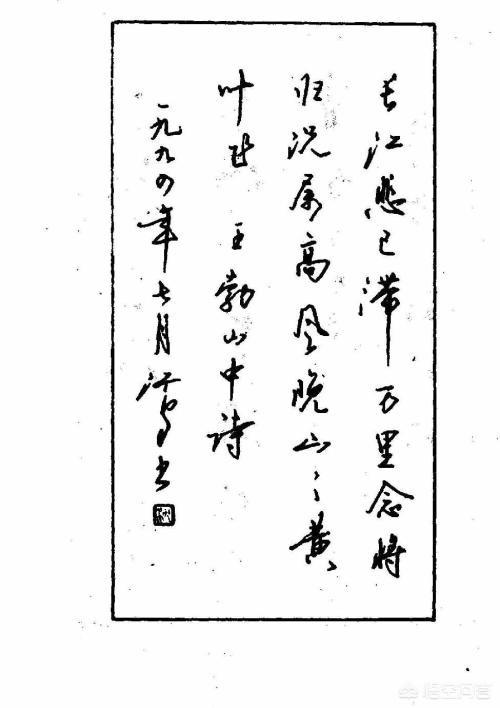 长江悲已滞万里念将
归况属高风晚山々黄
叶飞 王勃山中诗
一九九四年七月 书
悟空问答